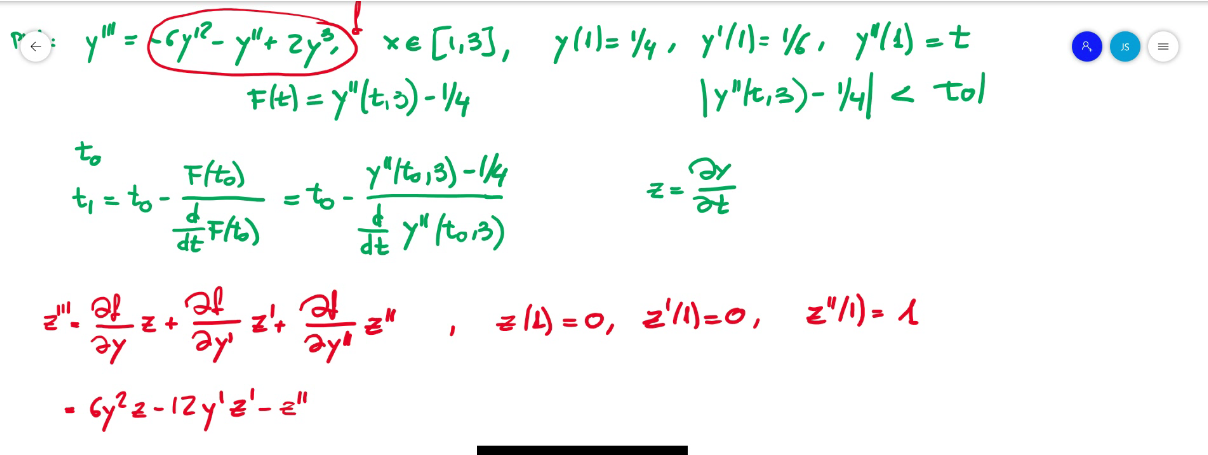 y''' = -6y'² - y'' + 2y³, f x ∈ [1,3], y(1) = 1/4, y'(1) = 1/6, y''(1) = t
JS
F(t) = y''(t,3) - 1/4 |y''(t,3) - 1/4| < tol
t₀
t₁ = t₀ - F(t₀) / (d/dt F(t₀)) = t₀ - (y''(t₀,3) - 1/4) / (d/dt y''(t₀,3)) z = ∂y/∂t
z''' = ∂f/∂y z + ∂f/∂y' z' + ∂f/∂y'' z'' , z(1) = 0, z'(1) = 0, z''(1) = 1
= 6y²z - 12y'z' - z''